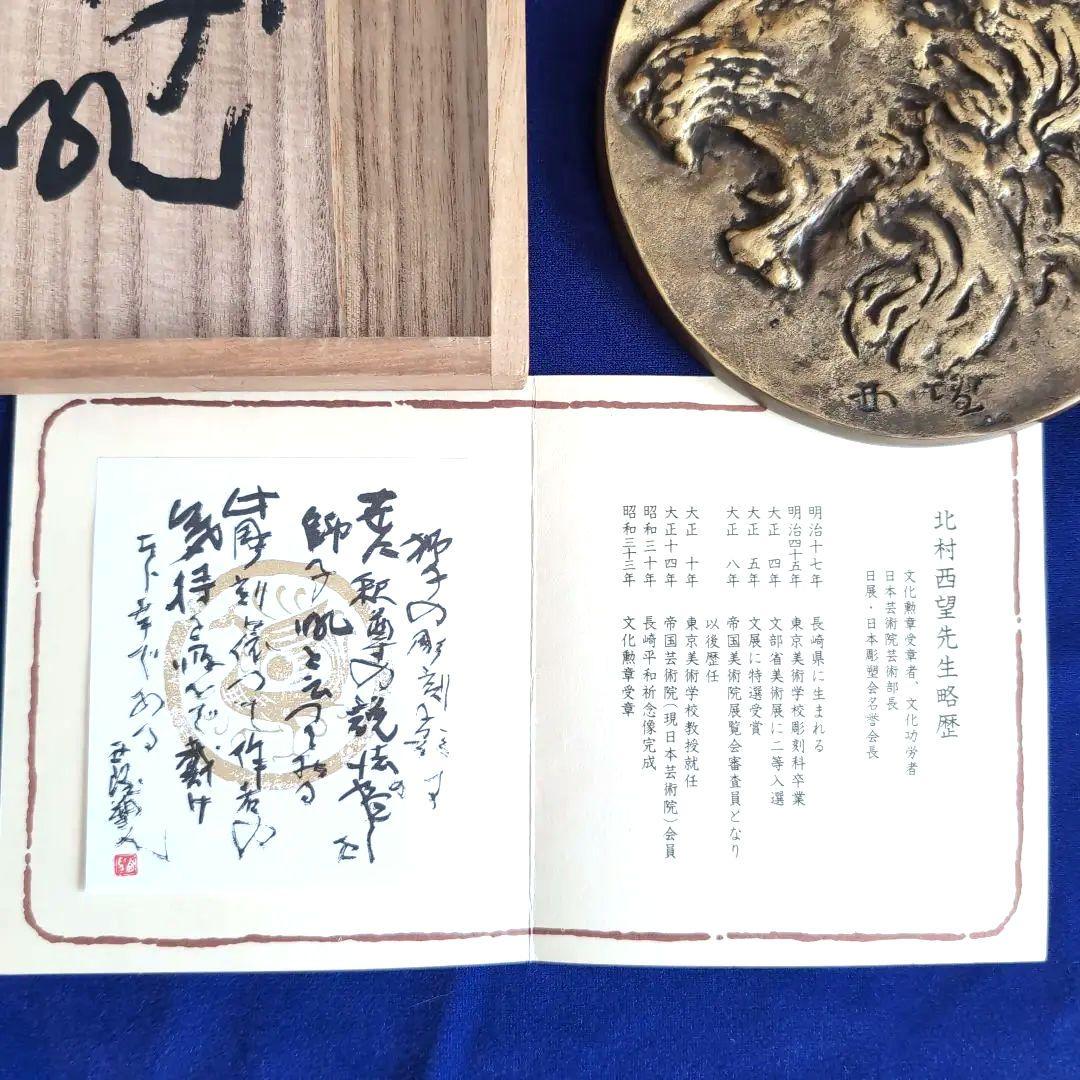 吼
西望
北村西望先生略歴
文化勲章受章者、文化功労者
日本芸術院芸術部長
日展・日本彫塑会名誉会長
明治十七年 長崎県に生まれる
明治四十五年 東京美術学校彫刻科卒業
大正 四年 文部省美術展に二等入選
大正 五年 文展に特選受賞
大正 八年 帝国美術院展覧会審査員となり
以後歴任
大正 十年 東京美術学校教授就任
大正十四年 帝国芸術院(現日本芸術院)会員
昭和三十年 長崎平和祈念像完成
昭和三十三年 文化勲章受章
獅子の彫刻
釈尊の説法
師子吼と云
作者の
気持